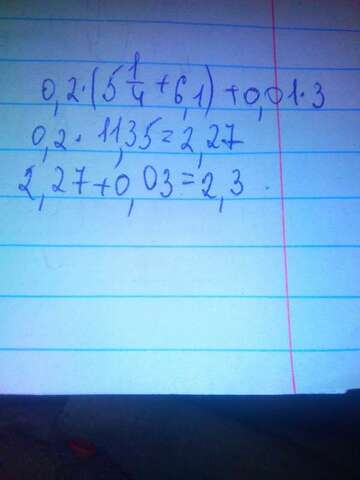 0,2·(5 1/4 + 6,1) + 0,01·3
0,2 · 11,35 = 2,27
2,27 + 0,03 = 2,3.